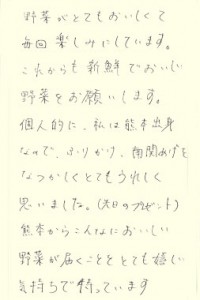 野菜がとてもおいしくて
毎回楽しみにしています。
これからも新鮮でおいしい
野菜をお願いします。
個人的に、私は熊本出身
なので、ふりかけ、南関あげを
なつかしくとてもうれしく
思いました。(先日のプレゼント)
熊本からこんなにおいしい
野菜が届くこととても嬉しい
気持ちで待っています